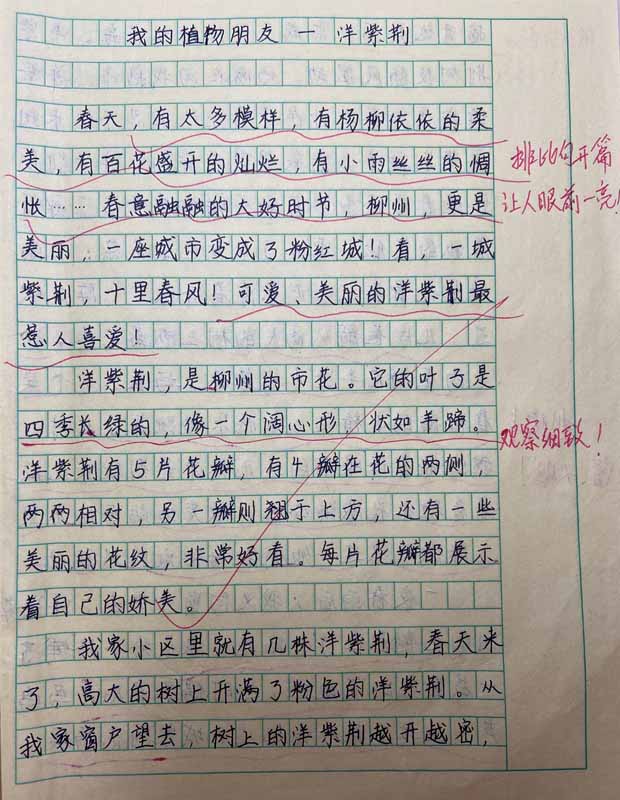 我的植物朋友 — 洋紫荆
春天，有太多模样，有杨柳依依的柔
美，有百花盛开的灿烂，有小雨丝丝的惆
怅……春意融融的大好时节，柳州，更是
美丽，一座城市变成了粉红城！看，一城
紫荆，十里春风！可爱、美丽的洋紫荆最
惹人喜爱！
洋紫荆，是柳州的市花。它的叶子是
四季长绿的，像一个阔心形，状如羊蹄。
洋紫荆有5片花瓣，有4瓣在花的两侧，
两两相对，另一瓣则翘于上方，还有一些
美丽的花纹，非常好看。每片花瓣都展示
着自己的娇美。
我家小区里就有几株洋紫荆，春天来
了，高大的树上开满了粉色的洋紫荆。从
我家窗户望去，树上的洋紫荆越开越密，
排比句开篇
让人眼前一亮！
观察细致！